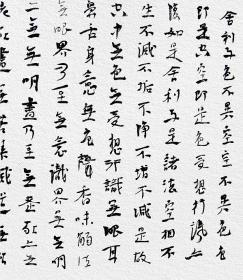 舍利子色不異空空不異色
即是空空即是色受想行識亦
復如是舍利子是諸法空相不
生不滅不垢不淨不增不減是故
空中無色無受想行識無眼耳
鼻舌身意無色聲香味觸法
無眼界乃至無意識界無無明
亦無無明盡乃至無老死亦無
老死盡無苦集滅道無